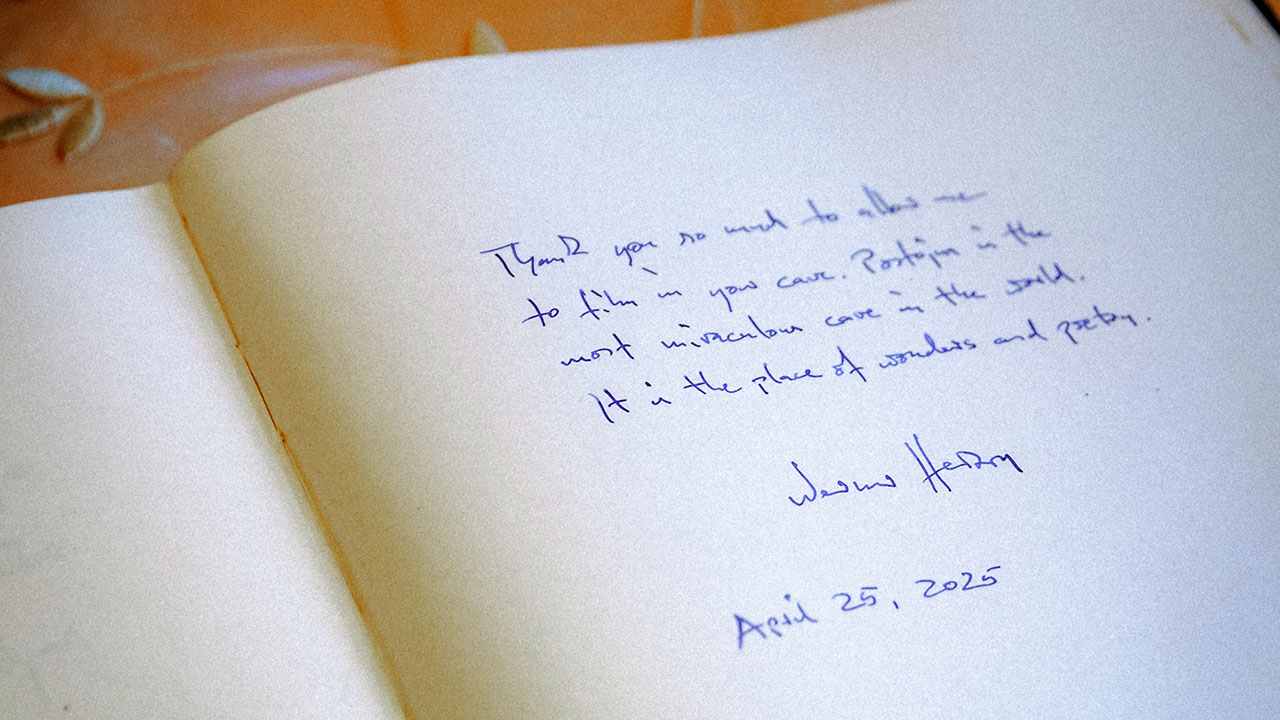 Thank you so much to allow me
to film in your cave. Postojna is the
most miraculous cave in the world.
It is the place of wonders and poetry.
Werner Herzog
April 25, 2025